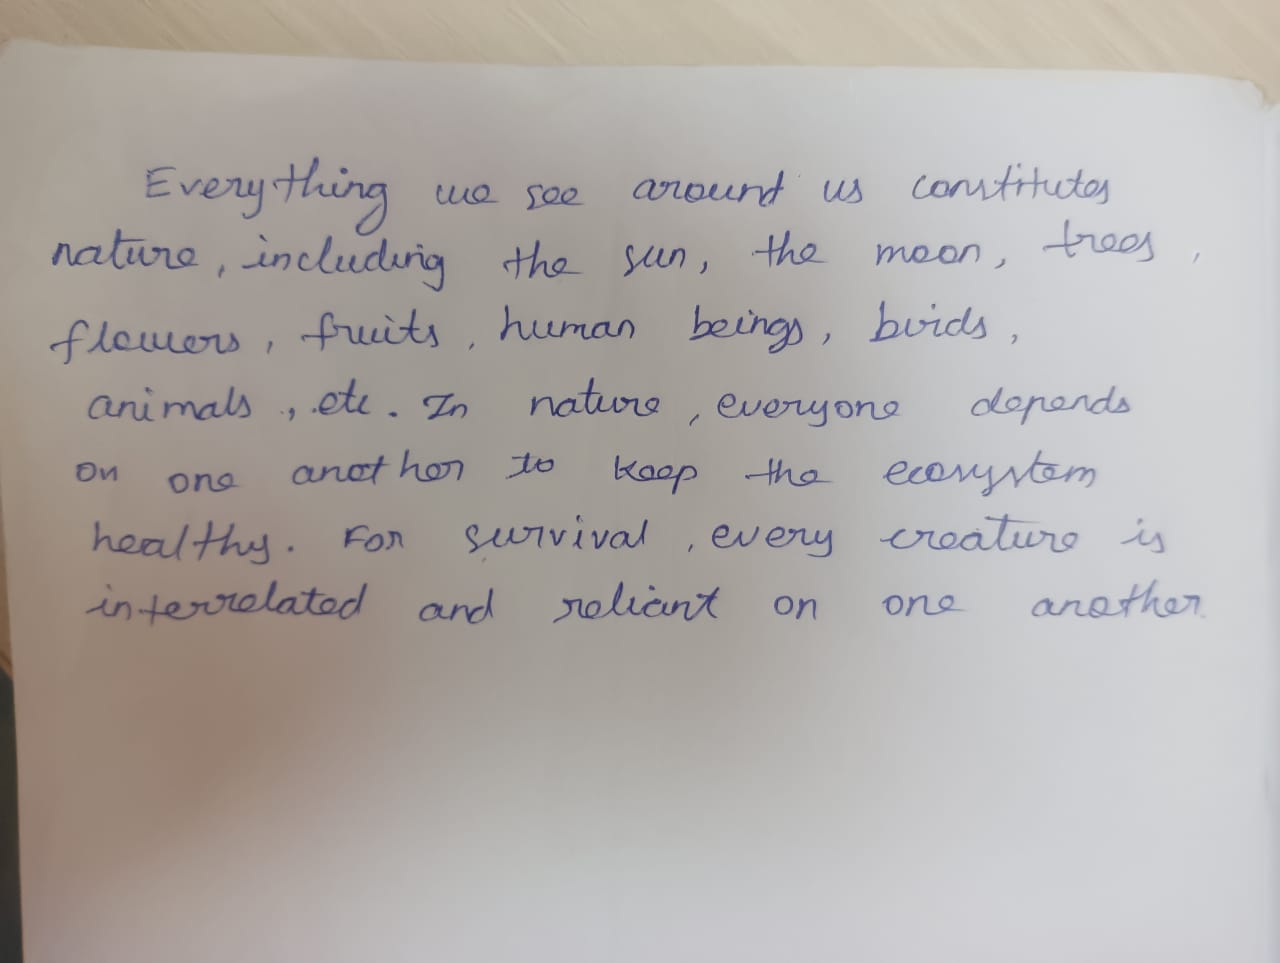 Everything we see around us constitutes
nature, including the sun, the moon, trees,
flowers, fruits, human beings, birds,
animals, etc. In nature, everyone depends
on one another to keep the ecosystem
healthy. For survival, every creature is
interrelated and reliant on one another.